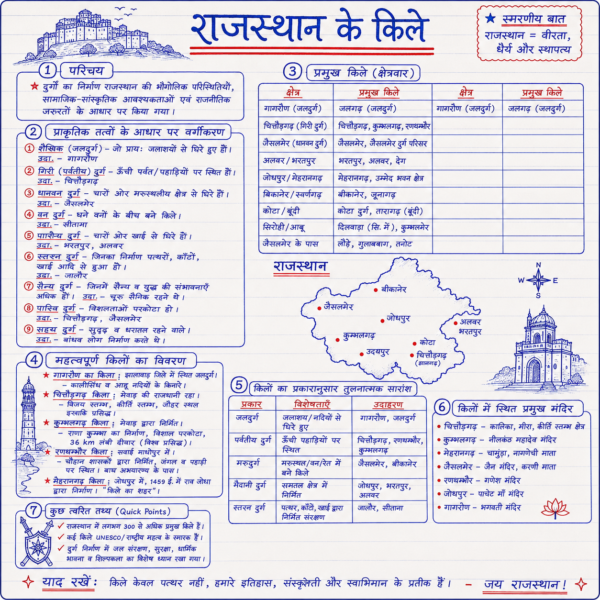 राजस्थान के किले
★ स्मरणीय बात
राजस्थान = वीरता,
धैर्य और स्थापत्य
1 परिचय
★ दुर्गों का निर्माण राजस्थान की भौगोलिक परिस्थितियों,
सामाजिक-सांस्कृतिक आवश्यकताओं एवं राजनीतिक
जरूरतों के आधार पर किया गया।
2 प्राकृतिक तत्वों के आधार पर वर्गीकरण
1 (जलदुर्ग) – जो प्रायः जलाशयों से घिरे हुए हों।
उदा. – गागरोण
2 गिरी (पर्वतीय) दुर्ग – ऊँची पर्वत/पहाड़ियों पर स्थित हैं।
उदा. – चित्तौड़गढ़
3 धानवन दुर्ग – चारों ओर मरुस्थलीय क्षेत्र से घिरे हों।
उदा. – जैसलमेर
4 वन दुर्ग – घने वनों के बीच बने किले।
उदा. – सीतामा
5 दुर्ग – चारों ओर खाई से घिरे हों।
उदा. – भरतपुर, अलवर
6 दुर्ग – जिनका निर्माण पत्थरों, काँटों,
खाई आदि से हुआ हो।
उदा. – जालौर
7 सैन्य दुर्ग – जिनमें सैन्य व युद्ध की संभावनाएँ
अधिक हों। उदा. – चूरू सैनिक रहने थे।
8 पारिव दुर्ग – विशालताओं परकोटा हो।
उदा. – चित्तौड़गढ़, जैसलमेर
9 सहथ दुर्ग – सुदृढ़ व धरातल रहने वाले।
उदा. – बांधव लोग निर्माण करते थे।
3 प्रमुख किले (क्षेत्रवार)
क्षेत्र प्रमुख किले क्षेत्र प्रमुख किले
गागरौण (जलदुर्ग) जलगढ़ (जलदुर्ग) गागरौण (जलदुर्ग) जलगढ़ (जलदुर्ग)
चित्तौड़गढ़ (गिरी दुर्ग) चित्तौड़गढ़, कुम्भलगढ़, रणथम्भौर
जैसलमेर (धानवन दुर्ग) जैसलमेर, जैसलमेर दुर्ग परिसर
अलवर/भरतपुर भरतपुर, अलवर, देग
जोधपुर/मेहरानगढ़ मेहरानगढ़, उम्मेद भवन क्षेत्र
बिकानेर/स्वर्णगढ़ बीकानेर, जूनागढ़
कोटा/बूंदी कोटा दुर्ग, तारागढ़ (बूंदी)
सिरोही/आबू दिलवाड़ा (सि. में), कुम्भलगढ़
जैसलमेर के पास लोड़े, गुलाबबाग, तनोट
राजस्थान
N
W E
S
बीकानेर
जैसलमेर
जोधपुर
अलवर
भरतपुर
कुम्भलगढ़
कोटा
उदयपुर
चित्तौड़गढ़
4 महत्वपूर्ण किलों का विवरण
★ गागरोण का किला : झालावाड़ जिले में स्थित जलदुर्ग।
– कालीसिंध व आहू नदियों के किनारे।
★ चित्तौड़गढ़ किला : मेवाड़ की राजधानी रहा।
– विजय स्तम्भ, कीर्ति स्तम्भ, जौहर स्थल
इत्यादि प्रसिद्ध।
★ कुम्भलगढ़ किला : मेवाड़ द्वारा निर्मित।
– राणा कुम्भा का निर्माण, विशाल परकोटा,
36 km लंबी दीवार (विश्व प्रसिद्ध)।
★ रणथम्भौर किला : सवाई माधोपुर में।
– चौहान शासकों द्वारा निर्मित, जंगल व पहाड़ी
पर स्थित। बाघ अभयारण्य के पास।
★ मेहरानगढ़ किला : जोधपुर में, 1459 ई. में राव जोधा
द्वारा निर्माण। "किले का शहर"।
5 किलों का प्रकारानुसार तुलनात्मक सारांश
प्रकार विशेषताएँ उदाहरण
जलदुर्ग जलाशय/नदियों से घिरे हुए गागरौण, जलदुर्ग
पर्वतीय दुर्ग ऊँची पहाड़ियों पर स्थित चित्तौड़गढ़, रणथम्भौर, कुम्भलगढ़
मरुदुर्ग मरुस्थल/वन/रेत में बने किले जैसलमेर, बीकानेर
मैदानी दुर्ग समतल क्षेत्र में निर्मित जोधपुर, भरतपुर, अलवर
स्तरन दुर्ग पत्थर, काँटे, खाई द्वारा निर्मित संरक्षण जालौर, सीताना
6 किलों में स्थित प्रमुख मंदिर
• चित्तौड़गढ़ – कालिका, मीरा, कीर्ति स्तम्भ क्षेत्र
• कुम्भलगढ़ – नीलकंठ महादेव मंदिर
• मेहरानगढ़ – चामुंडा, नागणेची माता
• जैसलमेर – जैन मंदिर, करणी माता
• रणथम्भौर – गणेश मंदिर
• जोधपुर – पाचेट माँ मंदिर
• गागरोण – भगवती मंदिर
7 कुछ त्वरित तथ्य (Quick Points)
✓ राजस्थान में लगभग 300 से अधिक प्रमुख किले हैं।
✓ कई किले UNESCO/राष्ट्रीय महत्व के स्मारक हैं।
✓ दुर्ग निर्माण में जल संरक्षण, सुरक्षा, धार्मिक
भावना व शिल्पकला का विशेष ध्यान रखा गया।
याद रखें: किले केवल पत्थर नहीं, हमारे इतिहास, संस्कृती और स्वाभिमान के प्रतीक हैं। – जय राजस्थान!